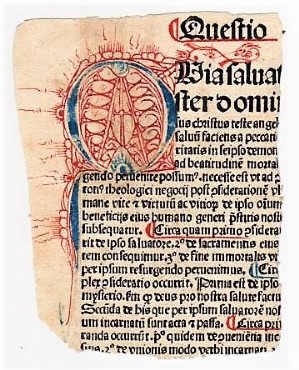 Questio
Uia saluat
ster domin
ius christus teste angel
saluū faciens a peccati
ritatis in seipso demon
ad beatitudinē mortal
gendo peruenire possum⁹. necesse est vt ad
totiꝰ theologici negocij post ꝯsiderationē vl
mane vite ⁊ virtutū ac vitioꝝ de ipso osum
beneficijs eius humano generi p̄stitis nostr
subsequatur. ¶ Circa quam primo ꝯsiderat
rit de ipso saluatore. 2° de sacramentis eius
tem consequimur. 3° de fine immortalis vi
per ipsum resurgendo peruenimus. ¶ Circ
plex ꝯsideratio occurrit. Prima est de ipso
mysterio. fm ꝙ deus pro nostra salute factu
Secūda de his que per ipsum saluatorē nost
um incarnatū sunt acta ⁊ passa. ¶ Circa pri
randa occurrūt. p° quidem de ꝯueniētia inc
nis. 2° de vnionis modo verbi incarnati